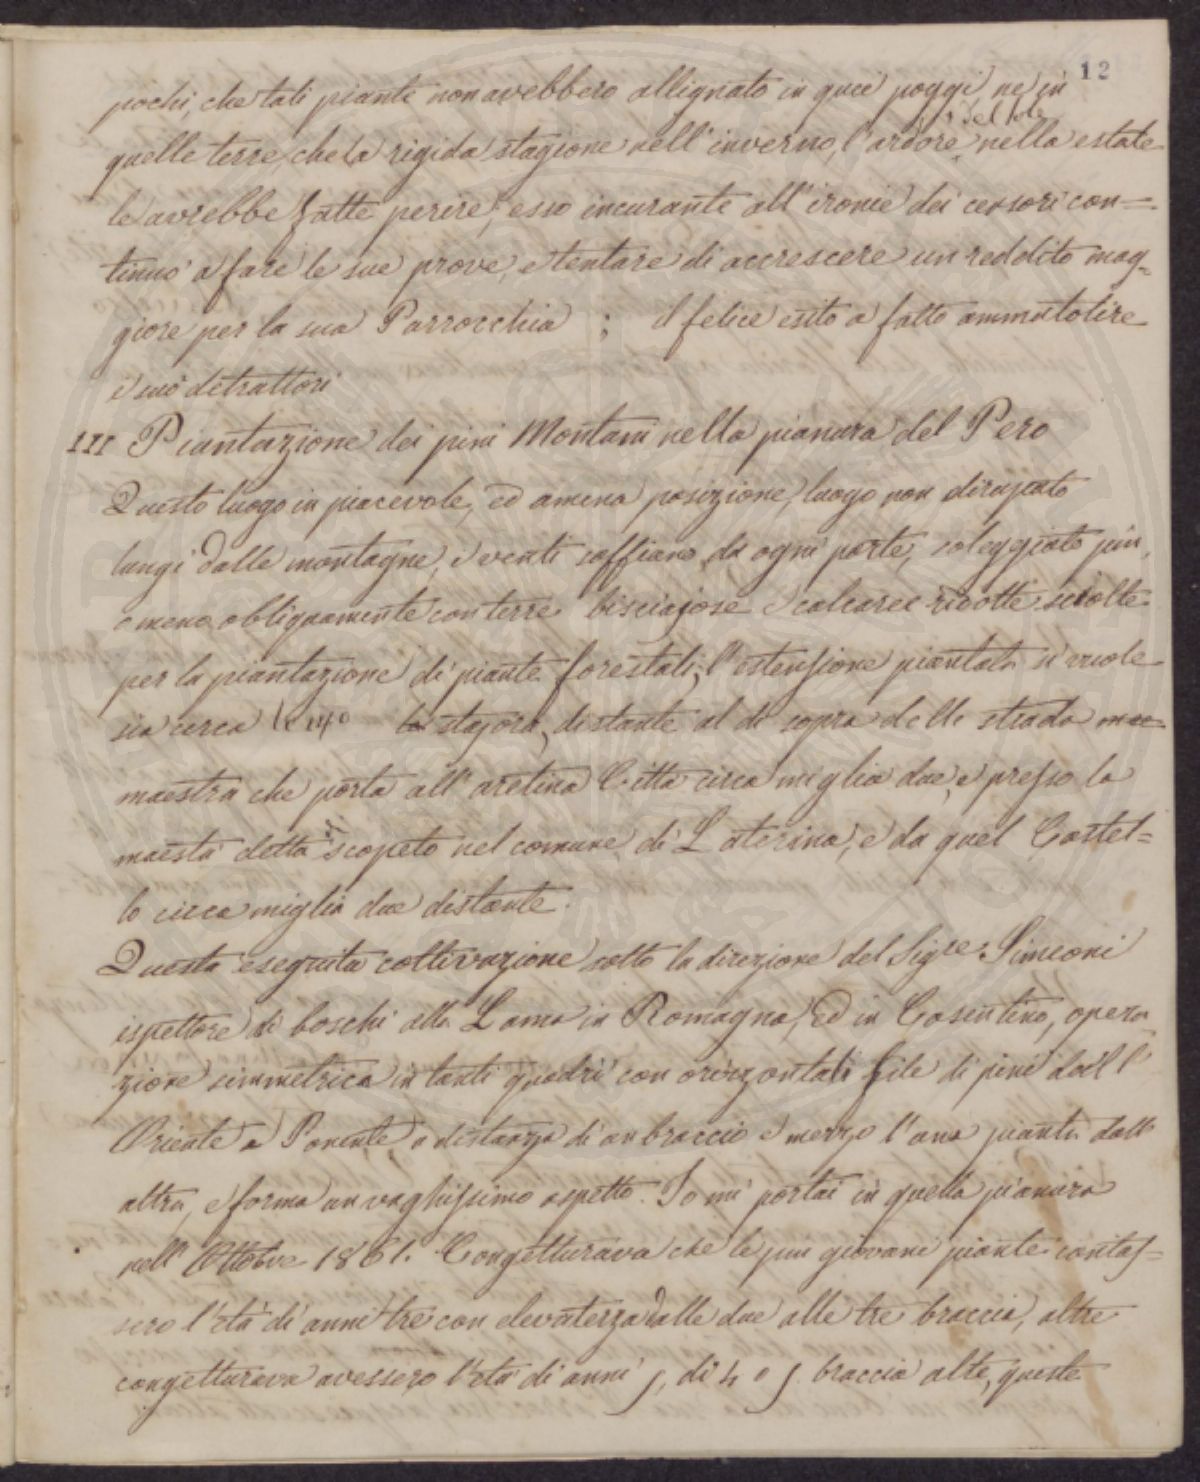 12
pochi, che tali piante non avebbero allignato in quei poggi ne in
del sole
quelle terre, che la rigida stagione nell'inverno, l'ardore nella estate
le avrebbe fatte perire, esso incurante all'ironie dei censori con=
tinuò a fare le sue prove, e tentare di accrescere un reddito mag=
giore per la sua Parrocchia ; il felice esito a fatto ammutolire
i suoi detrattori
III Piantazione dei pini Montani nella pianura del Pero
Questo luogo in piacevole, ed amena posizione, luogo non dirupato
lungi dalle montagne, i venti soffiano da ogni parte, soleggiato più,
o meno obliquamente con terre bisciajose e calcaree ridotte sciolte
per la piantazione di piante forestali, l'estensione piantata si vuole
sia circa stajora, distante al di sopra delle strada
maestra che porta all'aretina Città circa miglia due, e presso la
maestà detta scopeto nel comune di Laterina, e da quel Castel=
lo circa miglia due distante.
Questa eseguita coltivazione sotto la direzione del Sigre: Simeoni
ispettore di boschi alla Lama in Romagna, ed in Casentino, opera
zione simmetrica in tanti quadri con orizzontali file di pini dall'
Oriente a Ponente, a distanza di un braccio e mezzo l'una pianta dall
altra, e forma un vaghissimo aspetto. Io mi portai in quella pianura
nell' Ottobre 1861. Congetturava che le più giovani piante contas=
sero l'età di anni tre con elevatezza dalle due alle tre braccia, altre
congetturava avessero l'età di anni 5, di 4 o 5. braccia alte, queste